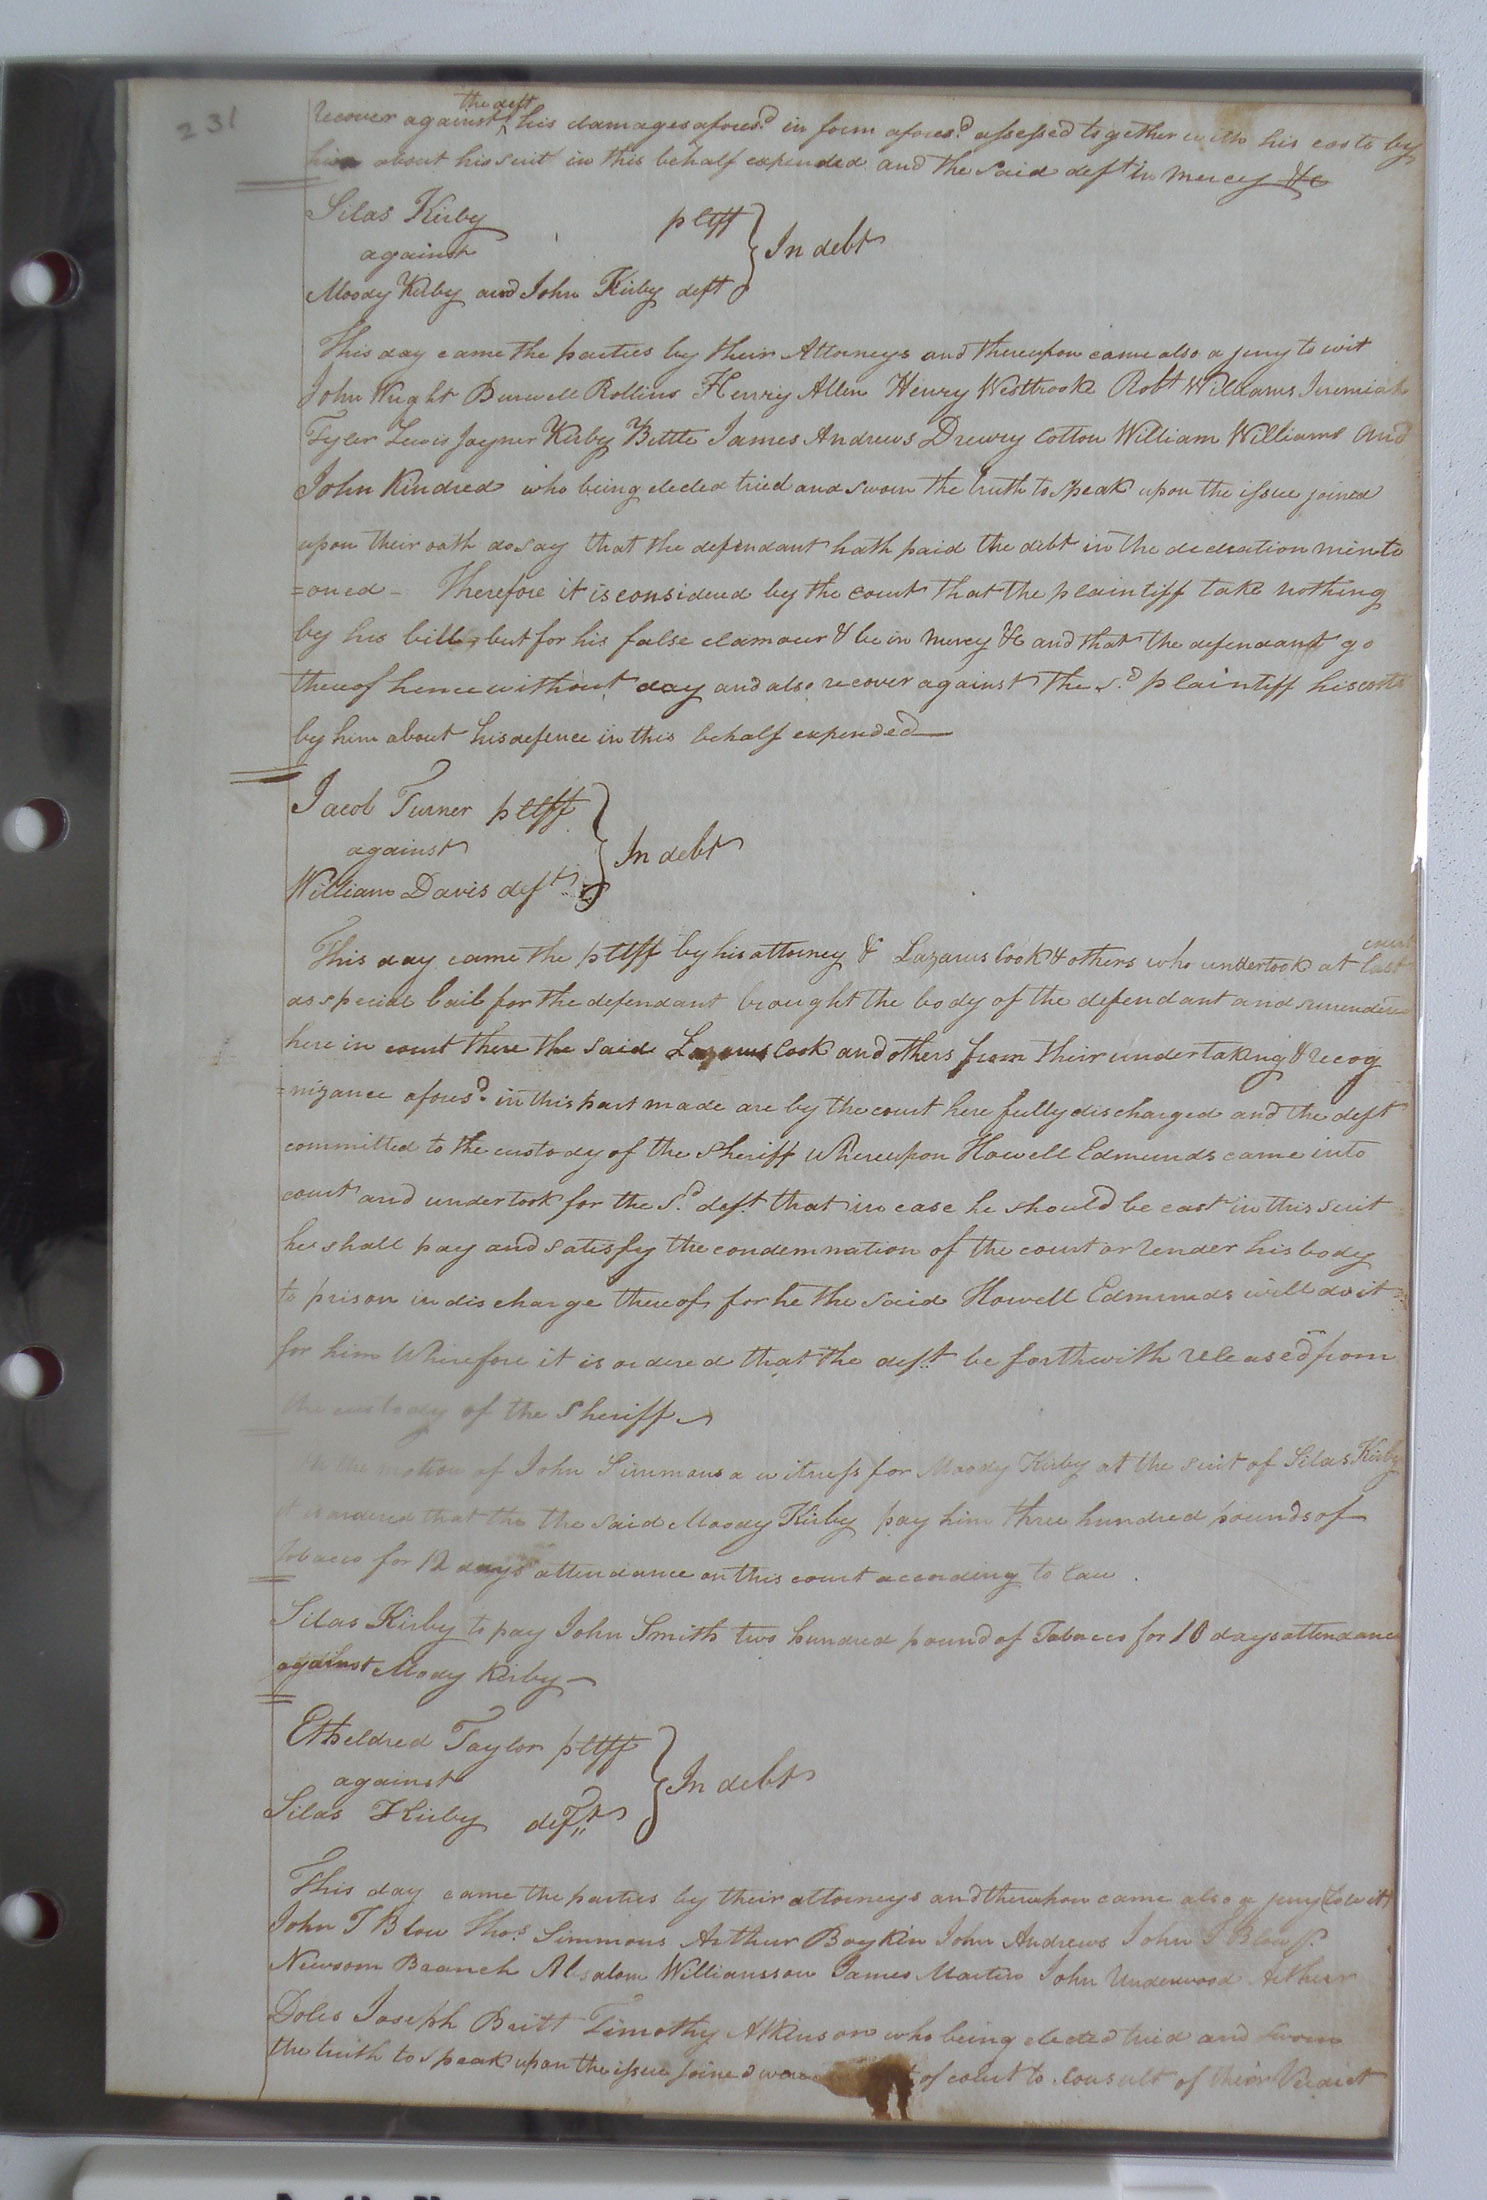 231
the deft
recover against his damages afores.d in form afores.d assessed together with his costs by
him about his suit in this behalf expended and the said deft in mercy &c
Silas Kirby pltff
against } In debt
Moody Kirby and John Kirby deft
This day came the parties by their Attorneys and thereupon came also a jury to wit
John Wright Burwell Rollins Henry Allen Henry Westbrooke Robt Williams Jeremiah
Tyler Lewis Joyner Kirby Bittle James Andrews Drewry Cotton William Williams and
John Kindred who being elected tried and sworn the truth to speak upon the issue joined
upon their oath do say that the defendant hath paid the debt in the declration menti
=oned - Therefore it is considered by the court that the plaintiff take nothing
by his bill, but for his false clamour & be in mercy &c and that the defendant go
thereof hence without day and also recover against the s.d plaintiff his costs
by him about his defence in this behalf expended
Jacob Turner pltff
against } In debt
William Davis deft
court
This day came the pltff by his attorney & Lazarus Cook & others who undertook at last
as special bail for the defendant brought the body of the defendant and surrendered
here in court there the said Lazarus Cook and others from their undertaking & recog
=nizance afores.d in this part made are by the court here fully discharged and the deft
committed to the custody of the Sheriff whereupon Howell Edmunds came into
court and undertook for the s.d deft that in case he should be cast in this suit
he shall pay and satisfy the condemnation of the court or render his body
to prison in discharge thereof for he the said Howell Edmunds will do it
for him Wherefore it is ordered that the deft be forthwith released from
the custody of the Sheriff
On the motion of John Simmons a witness for Moody Kirby at the suit of Silas Kirby
it is ordered that the the said Moody Kirby pay him three hundred pounds of
tobacco for 12 days attendance on this court according to law.
Silas Kirby to pay John Smith two hundred pound of Tobacco for 10 days attendance
against Mody Kirby
Etheldred Taylor pltff
against } In debt
Silas Kirby deft
This day came the parties by their attorneys and thereupon came also a jury (to wit)
John T Blow Tho.s Simmons Arthur Boykin John Andrews John T Blow
Newsom Branch Absalom Williamsson James Martin John Underwood Arthur
Doles Joseph Britt Timothy Atkinson who being elected tried and sworn
the truth to speak upon the issue joined of court to consult of their Verdict